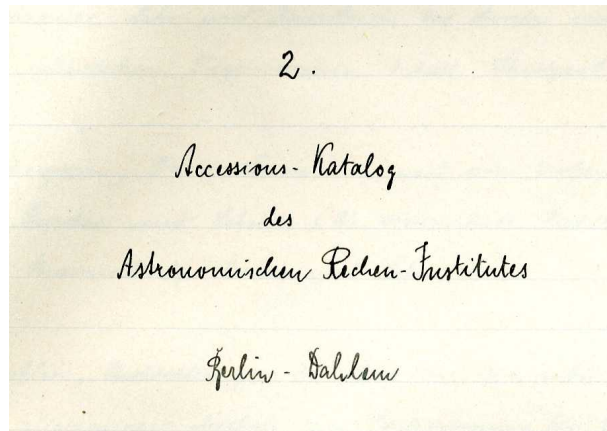 2.
Accessions-Katalog
des
Astronomischen Rechen-Institutes
Berlin-Dahlem